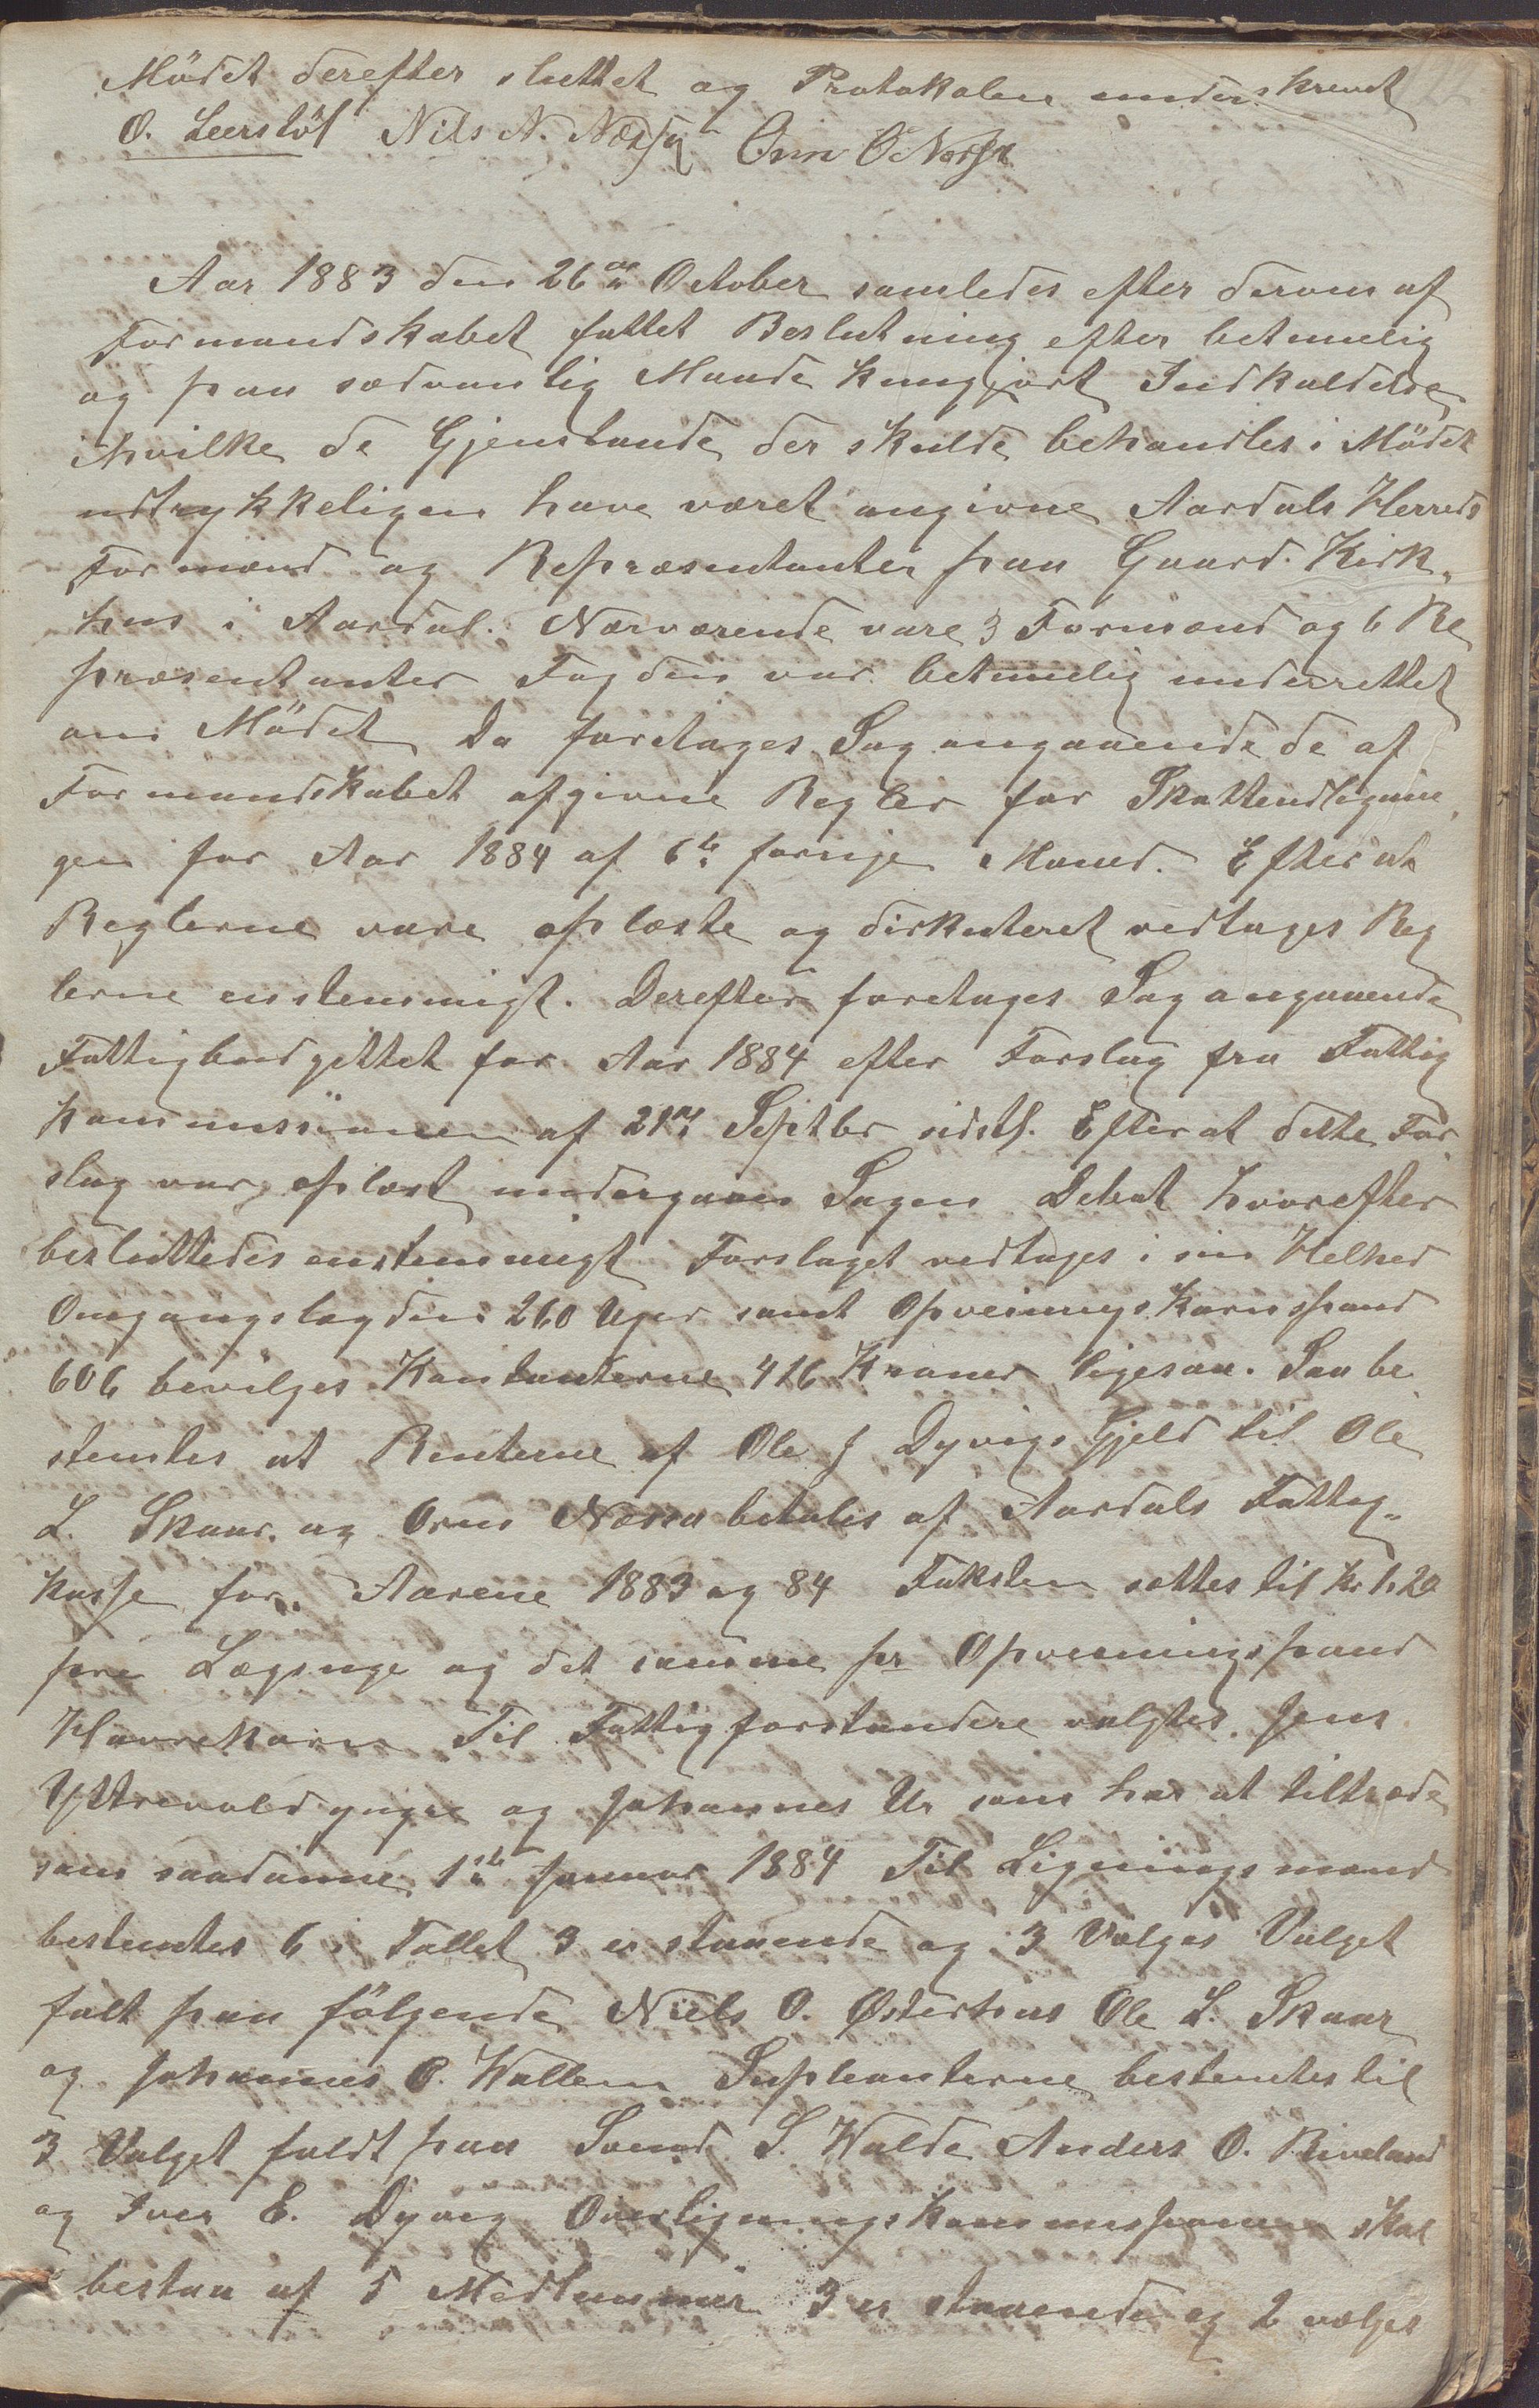 Mödet derefter sluttet og Protokolen underskrevet
O. Leerstöl Nils N. Næssa Orm O Næssa
Aar 1883 den 26de October samledes efter derom af
Formandskabet fattet Beslutning efter betimelig
og paa sædvanlig Maade kungjort Indkaldelse
ihvilke de Gjenstande der skulde behandles i Mödet
udtrykkeligen have været angivne Aardals Herreds
Formænd og Repræsentanter paa Gaard. Kirk„
hus i Aardal. Nærværende vare 3 Formænd og 6 Re
præsentanter Fogden var betimelig underrettet
om Mödet Da foretages Sag angaaende de af
Formandskabet afgivne Regler for Skatteudlignin„
gen for Aar 1884 af 6te forrige Maaned. Efterat
Reglerne vare oplæste og diskuteret vedtages Reg
lerne enstemmigt. Derefter foretages Sag angaaende
Fattigbudgettet for Aar 1884 efter Forslag fra Fattig
kommissionen af 21de Septbr sidstl. Efterat dette For„
slag var oplæst undergaaes Sagen Debat hvorefter
besluttedes enstemmigt Forslaget vedtages i sin Helhed
Omgangslægden 260 Uger samt Opveiningskornspand
606 bevilges Kontanterne 416 Kroner ligesaa. Saa be„
stemtes at Renterne af Ole J Dyvigs Gjeld til Ole
L. Skaar. og Orm Næssa betales af Aardals Fattig„
kasse for. Aarene 1883 og 84 Taksten sættes til Kr 1.20
pre Lægsuge og det samme pr Opveiningspand
Havrekorn Til Fattigforstandere valgtes. Jens
Yttrevold yngre og Johannes Ur som har at tiltræde
som saadanne, 1ste Januar 1884 Til Ligningsmænd
bestemtes 6 i Tallet 3 er staaende og 3 Vælges Valget
falt paa fölgende Niels O. Østerhus Ole L. Skaar
og Johannes O. Wallem Supleanterne bestemtes til
3 Valget faldt paa Svend S. Walde Anders O. Riveland
og Iver E. Dyvig Overligningskommissionen skal
bestaa af 5 Medlemmer 3 er staaende og 2 vælges